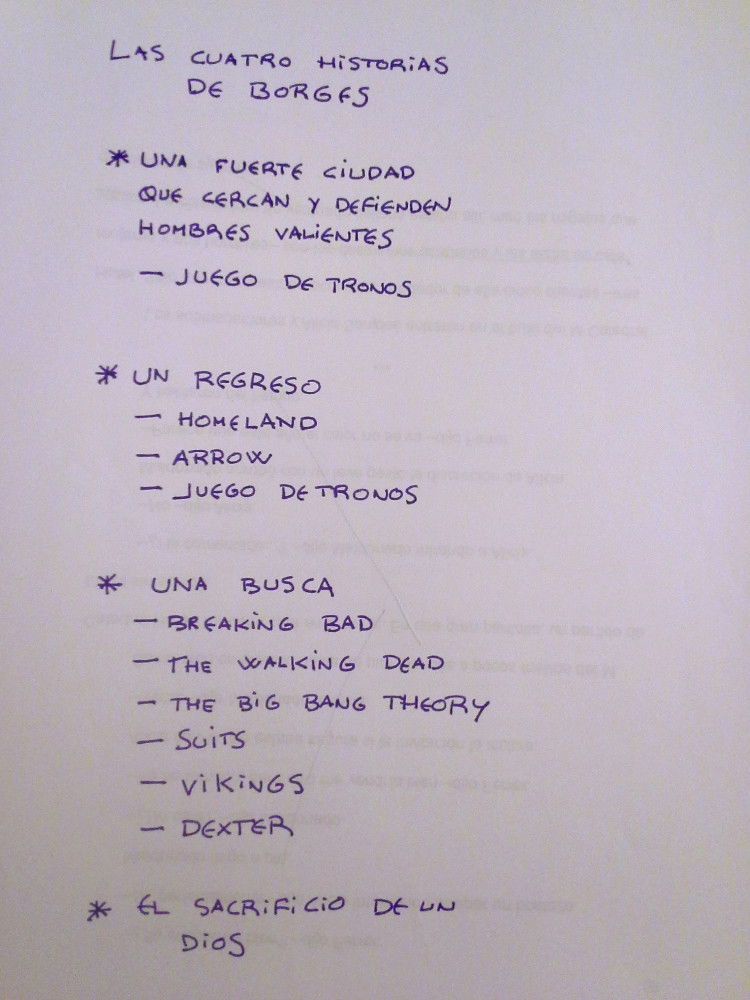 LAS CUATRO HISTORIAS
DE BORGES
* UNA FUERTE CIUDAD
QUE CERCAN Y DEFIENDEN
HOMBRES VALIENTES
— JUEGO DE TRONOS
* UN REGRESO
— HOMELAND
— ARROW
— JUEGO DE TRONOS
* UNA BUSCA
— BREAKING BAD
— THE WALKING DEAD
— THE BIG BANG THEORY
— SUITS
— VIKINGS
— DEXTER
* EL SACRIFICIO DE UN
DIOS